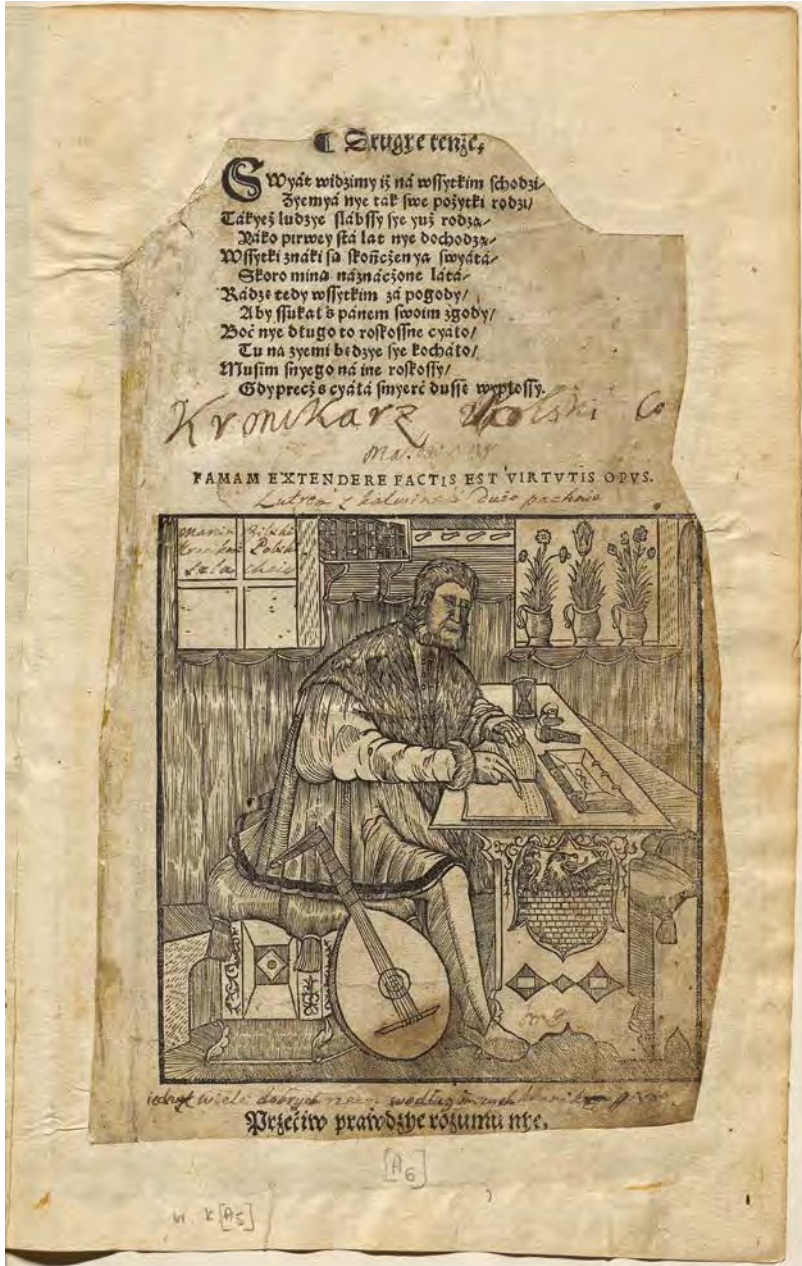 ¶ Drugye tenże,
SWyát widzimy iż ná wſſytkim ſchodzi/
Zyemyá nye ták ſwe pożytki rodzi/
Tákyeż ludzye ſlábſſy ſye yuż rodzą/
Yáko pirwey ſtá lat nye dochodzą/
Wſſytki znáki ſą ſkończenya ſwyátá/
Skoro miną náznáczone látá/
Rádzę tedy wſſytkim zá pogody/
Aby ſſukał s pánem ſwoim zgody/
Boć nye długo to roſkoſſne cyáło/
Tu na zyemi będzye ſye kocháło/
Muſim ſnyego ná ine roſkoſſy/
Gdy precż s cyáłá ſmyerć duſſę wypłoſſy.
Kronikarz Polski Co
FAMAM EXTENDERE FACTIS EST VIRTVTIS OPVS.
Lutrem z kalwinem dużo pachnie
Marcin Bilski
Kronikarz Polski
Szla chcic
iednak wiele dobrych rzeczy według
Przećiw prawdzye rozumu nye.
[A6]
w. K[A5]